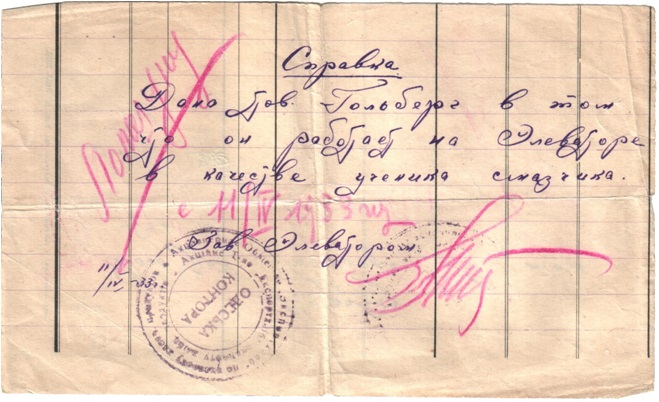 Справка.
Дана тов. Гольберг в том
что он работает на Элеваторе
в качестве ученика смазчика.
с 11/IV 1933 г.
Зав. Элеватором
11/IV-33г.
ОДЕСЬКА
КОНТОРА